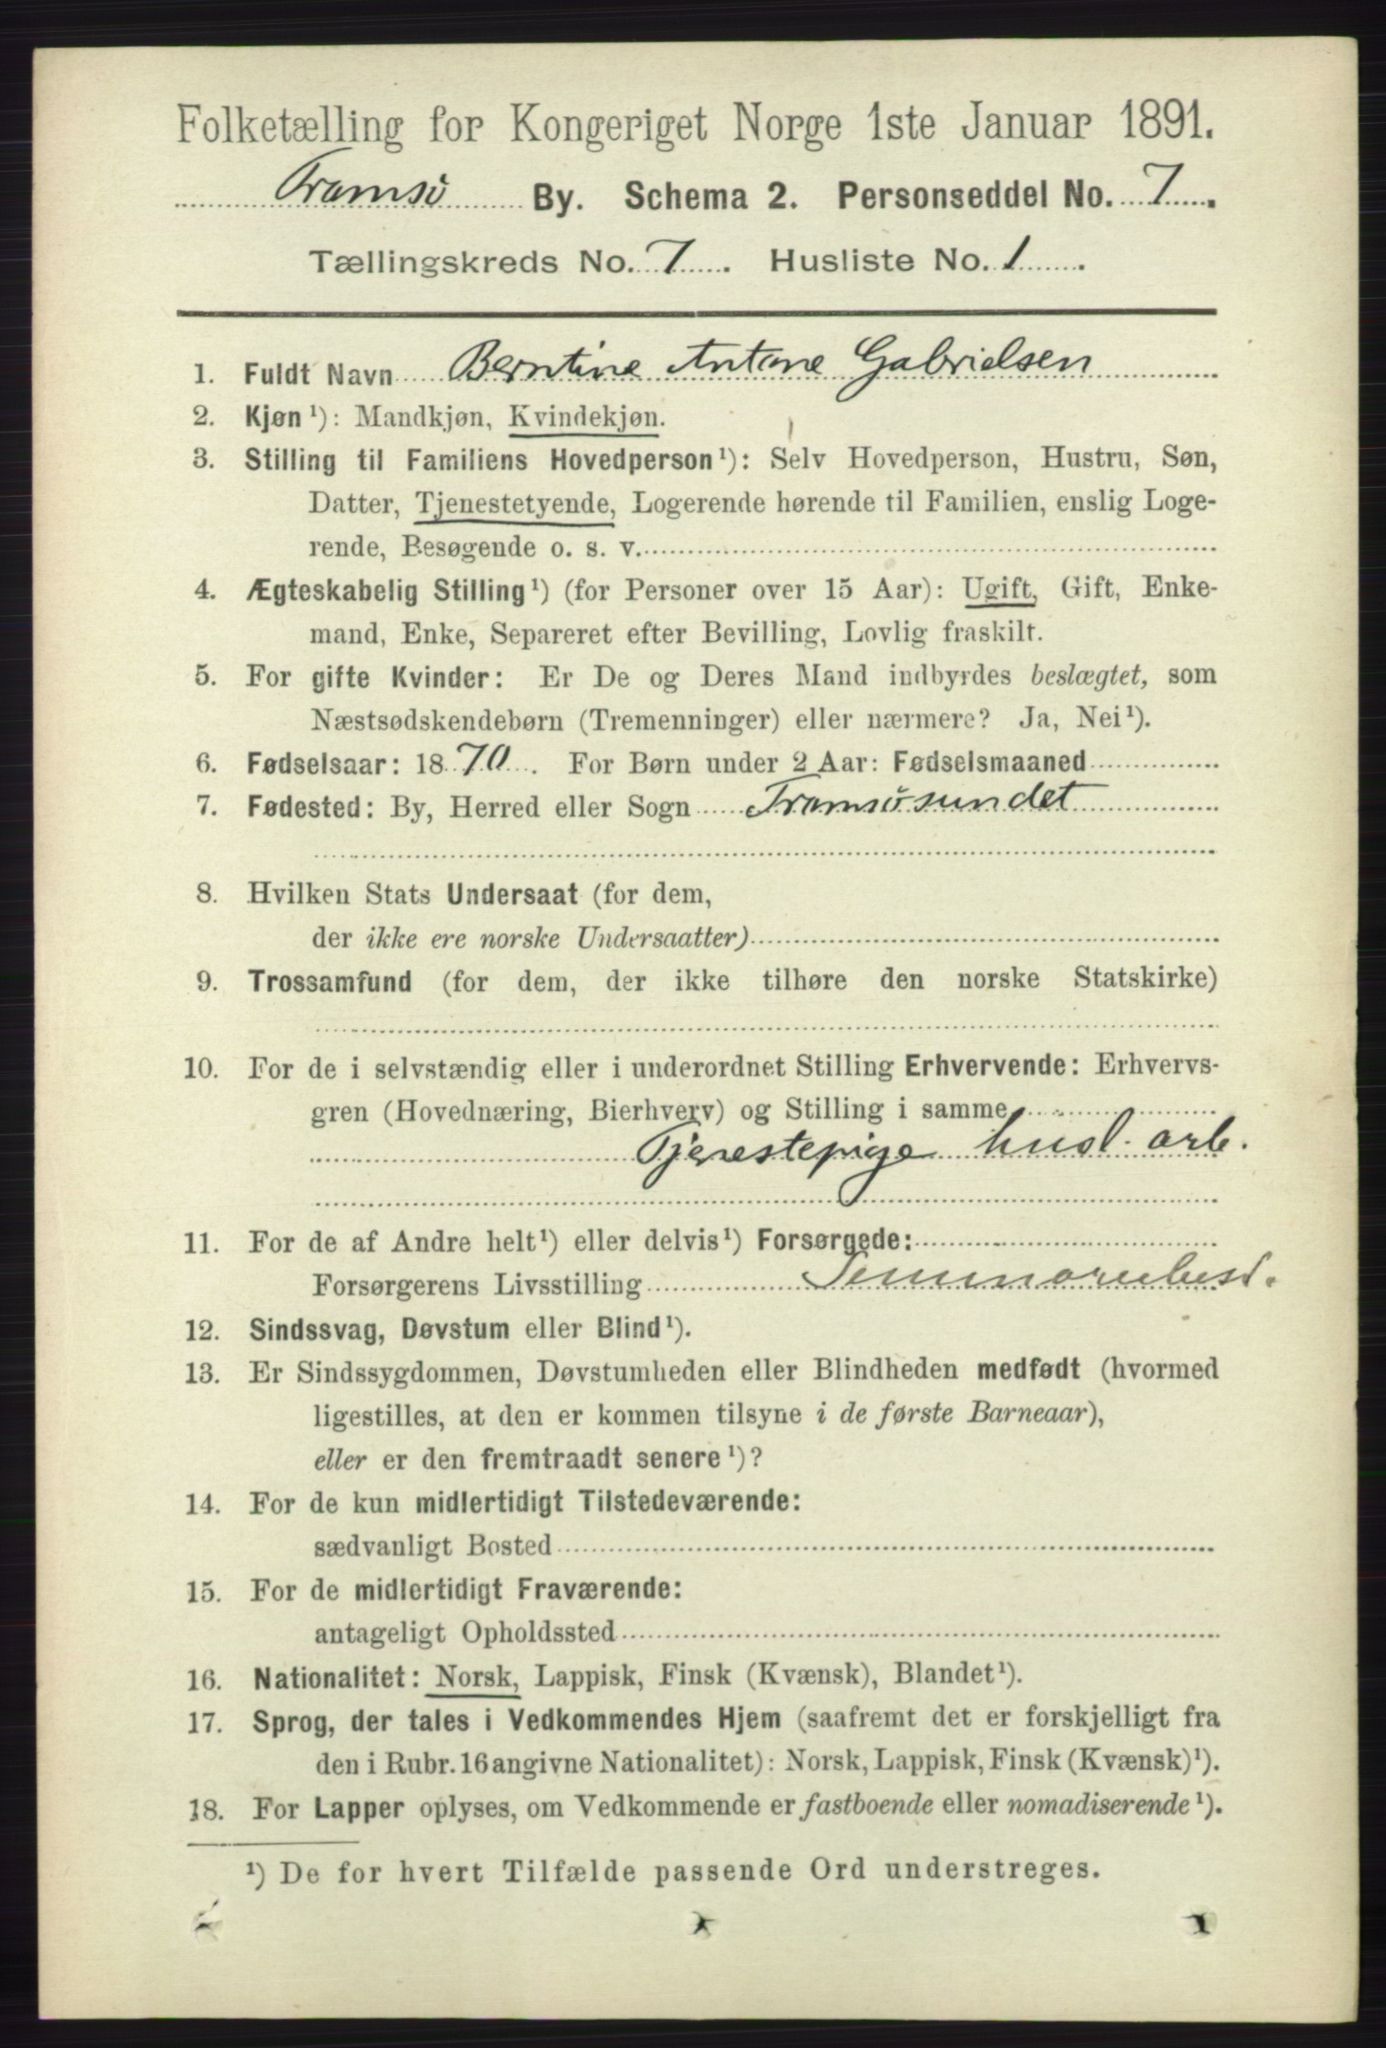 Folketælling for Kongeriget Norge 1ste Januar 1891.
Tromsø By. Schema 2. Personseddel No. 7.
Tællingskreds No. 7. Husliste No. 1
1. Fuldt Navn Berntine Antone Gabrielsen
2. Kjøn¹): Mandkjøn, Kvindekjøn.
3. Stilling til Familiens Hovedperson¹): Selv Hovedperson, Hustru, Søn,
Datter, Tjenestetyende, Logerende hørende til Familien, enslig Loge-
rende, Besøgende o. s. v.
4. Ægteskabelig Stilling¹) (for Personer over 15 Aar): Ugift, Gift, Enke-
mand, Enke, Separeret efter Bevilling, Lovlig fraskilt.
5. For gifte Kvinder: Er De og Deres Mand indbyrdes beslægtet, som
Næstsødskendebørn (Tremenninger) eller nærmere? Ja, Nei¹).
6. Fødselsaar: 1870. For Børn under 2 Aar: Fødselsmaaned
7. Fødested: By, Herred eller Sogn Tromsøsundet
8. Hvilken Stats Undersaat (for dem,
der ikke ere norske Undersaatter)
9. Trossamfund (for dem, der ikke tilhøre den norske Statskirke)
10. For de i selvstændig eller i underordnet Stilling Erhvervende: Erhvervs-
gren (Hovednæring, Bierhverv) og Stilling i samme
Tjenestepige husl. arb.
11. For de af Andre helt¹) eller delvis¹) Forsørgede:
Forsørgerens Livsstilling
12. Sindssvag, Døvstum eller Blind¹).
13. Er Sindssygdommen, Døvstumheden eller Blindheden medfødt (hvormed
ligestilles, at den er kommen tilsyne i de første Barneaar),
eller er den fremtraadt senere¹)?
14. For de kun midlertidigt Tilstedeværende:
sædvanligt Bosted
15. For de midlertidigt Fraværende:
antageligt Opholdssted
16. Nationalitet: Norsk, Lappisk, Finsk (Kvænsk), Blandet¹).
17. Sprog, der tales i Vedkommendes Hjem (saafremt det er forskjelligt fra
den i Rubr. 16 angivne Nationalitet): Norsk, Lappisk, Finsk (Kvænsk)¹).
18. For Lapper oplyses, om Vedkommende er fastboende eller nomadiserende¹).
¹) De for hvert Tilfælde passende Ord understreges.